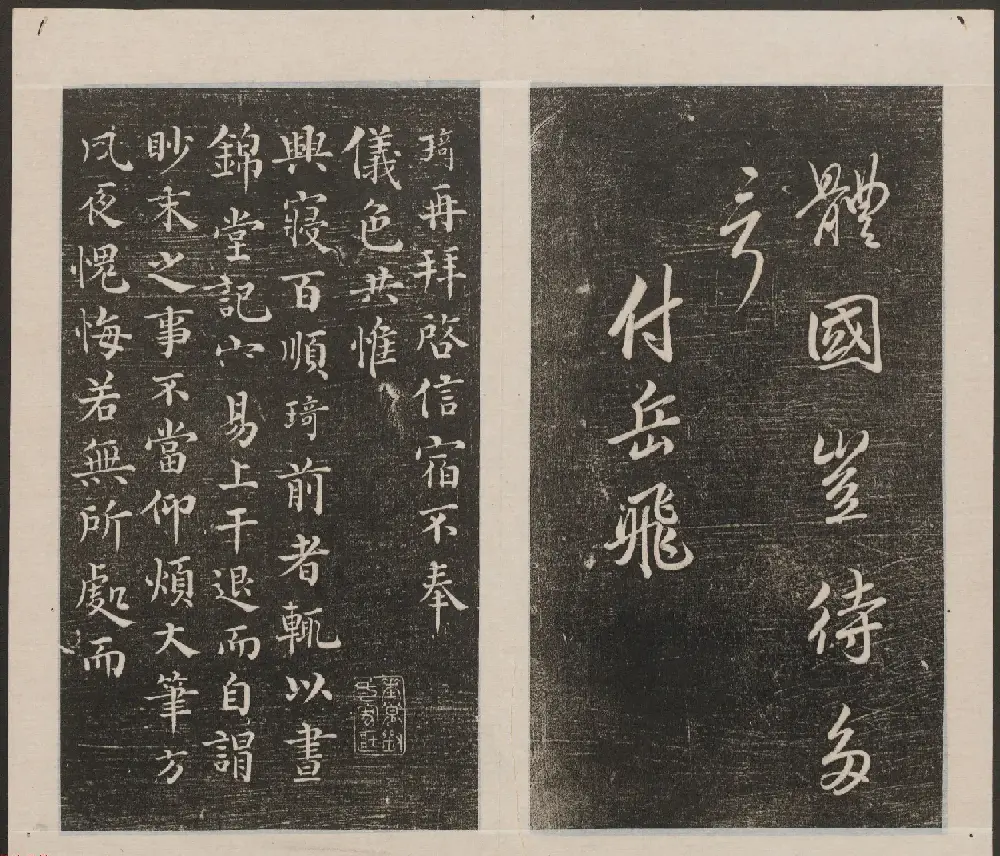 體國豈待多
言
付岳飛
琦再拜啓信宿不奉
儀色共惟
興寢百順琦前者輒以晝
錦堂記容易上干退而自謂
眇末之事不當仰煩大筆方
夙夜愧悔若無所處而